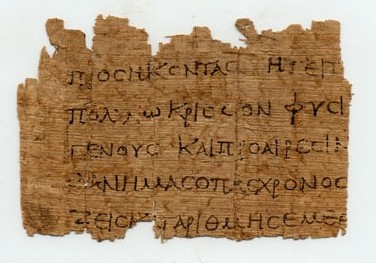 ΠΡΟΣΗΚΟΝΤΑΣ ΗΓΕΠ
ΠΟΛΛΩ ΚΡΙΣΣΟΝ ΦΥΣΙ
ΓΕΝΟΥΣ ΚΑΙ ΠΡΟΑΙΡΕΣΙΝ
ΑΝ ΗΜΑΣ Ο ΠΑΣ ΧΡΟΝΟΣ
ΑΡΙΘΜΗΣΕΜΕ